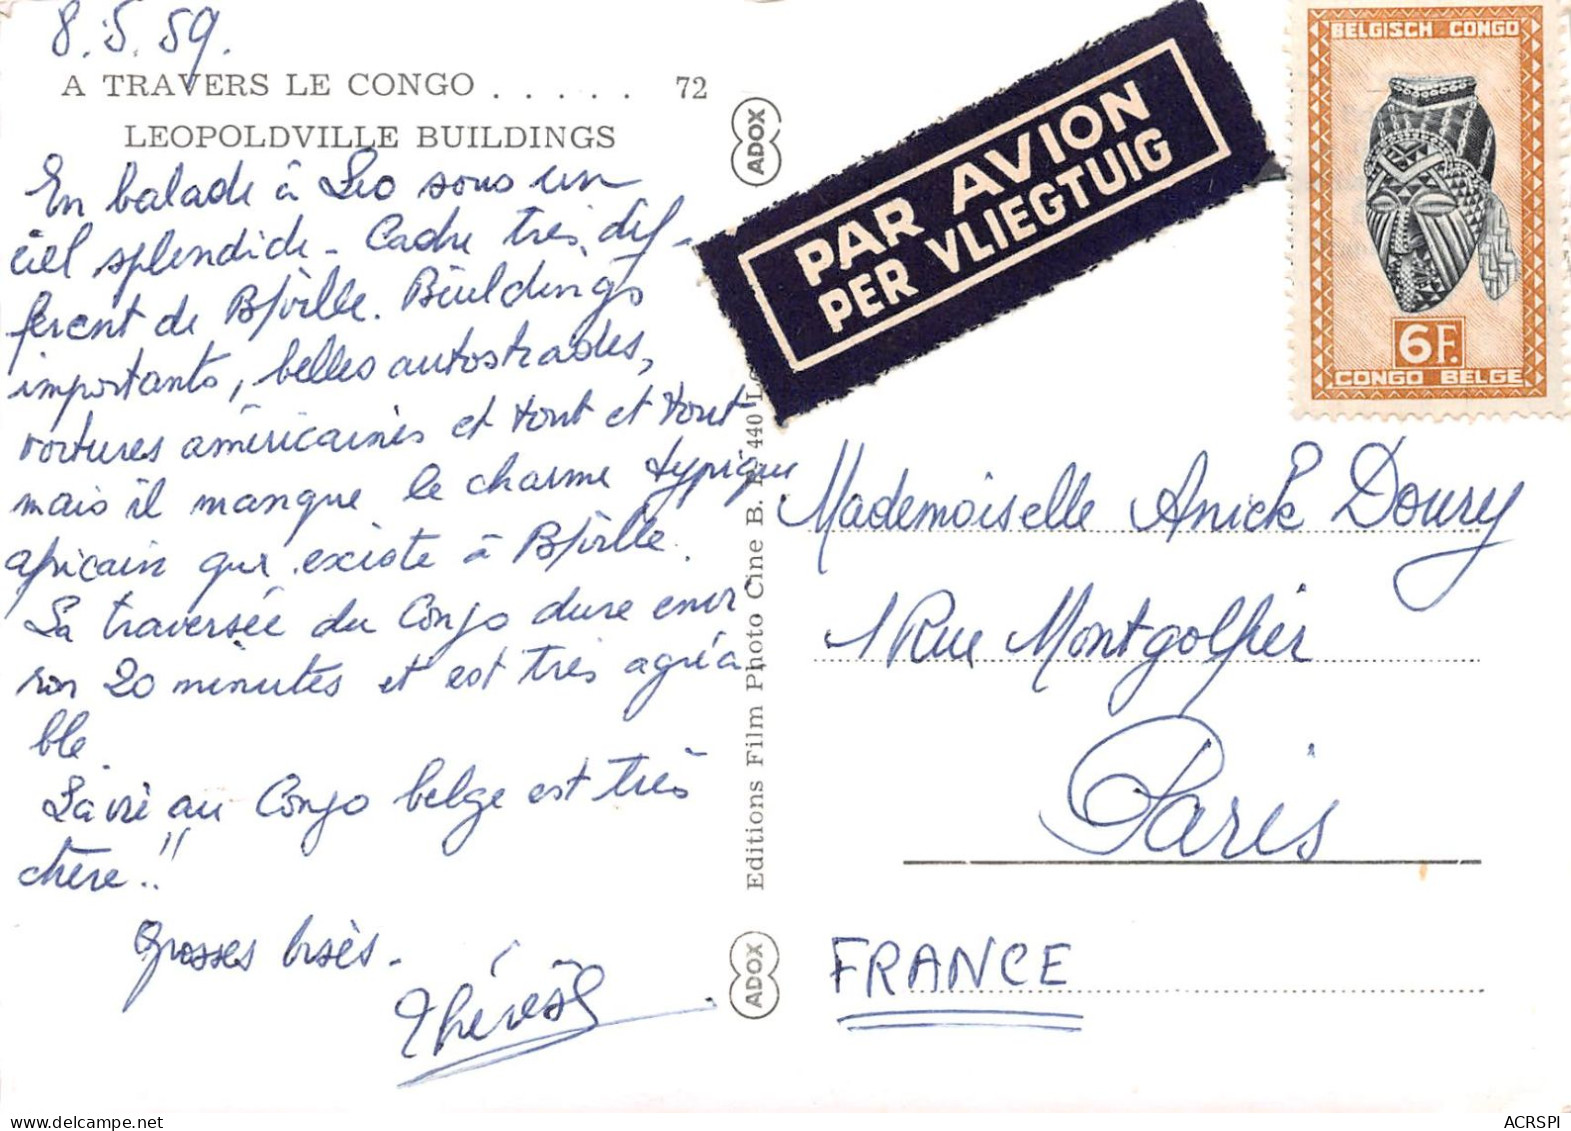 8.5.59.
A TRAVERS LE CONGO . . . . . 72
LEOPOLDVILLE BUILDINGS
En balade à Léo sous un
ciel splendide - Cadre très dif-
férent de B/ville. Buildings
importants, belles autostrades,
voitures américaines et tout et tout
mais il manque le charme typique
africain qui existe à B/ville.
La traversée du Congo dure envi
ron 20 minutes et est très agréa
ble.
La vie au Congo belge est très
chère!!
Grosses bises -
Thérèse
ADOX
Editions Film Photo Cine B. P. 440 L
ADOX
PAR AVION
PER VLIEGTUIG
BELGISCH CONGO
6F.
CONGO BELGE
Mademoiselle Anick Doury
1 Rue Montgolfier
Paris
FRANCE
ACRSPI